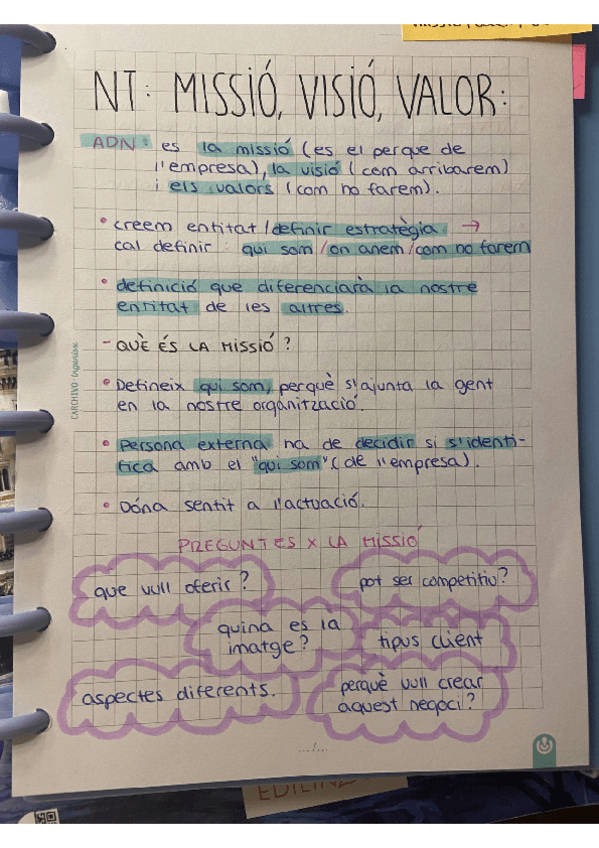 NT: MISSIÓ, VISIÓ, VALOR:
ADN: es la missió (es el perque de
l'empresa), la visió (com arribarem)
i els valors (com ho farem).
• creem entitat / definir estratègia →
cal definir: qui som / on anem / com ho farem
• definició que diferenciarà la nostre
entitat de les altres.
- QUÈ ÉS LA MISSIÓ?
• Defineix qui som, perquè s'ajunta la gent
en la nostre organització.
• Persona externa ha de decidir si s'identi-
fica amb el "qui som" (de l'empresa).
• Dóna sentit a l'actuació.
PREGUNTES X LA MISSIÓ
que vull oferir?
pot ser competitiu?
quina es la
imatge?
tipus client
aspectes diferents.
perquè vull crear
aquest negoci?
.../...